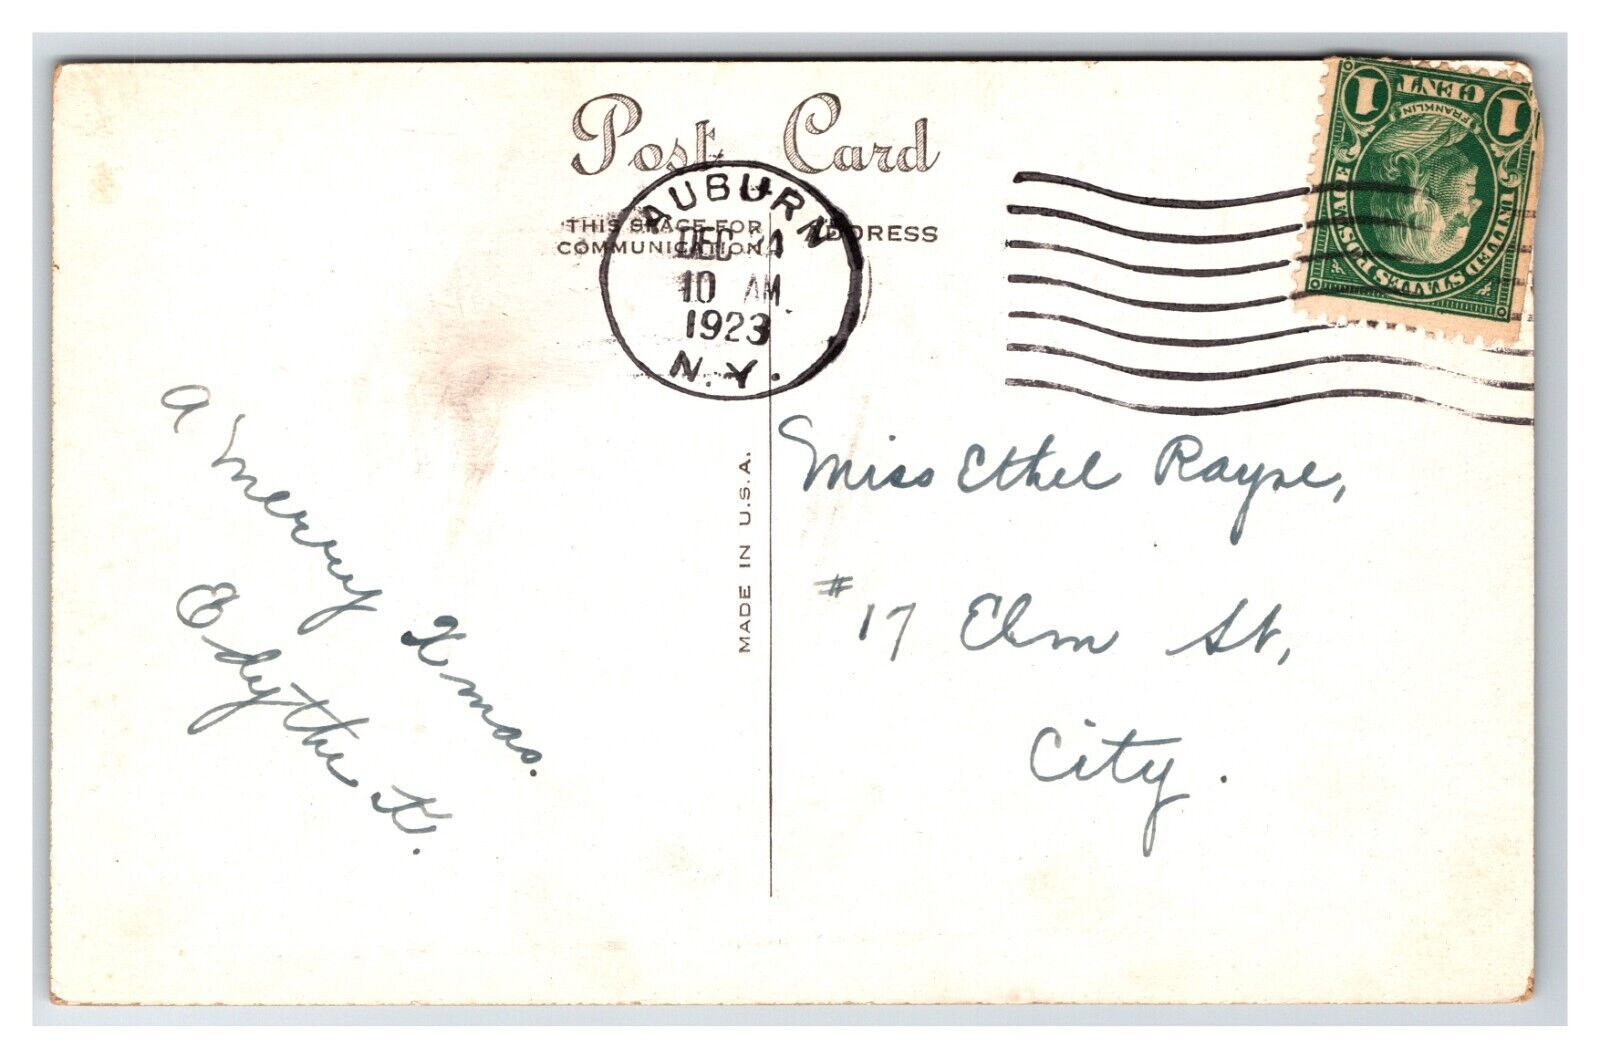 Post Card
THIS SPACE FOR
COMMUNICATION
ADDRESS
AUBURN
DEC
10 AM
1923
N.Y.
1 CENT 1
FRANKLIN
UNITED STATES POSTAGE
A Merry Xmas.
Edythe
MADE IN U.S.A.
Miss Ethel Rayne,
#17 Elm St,
City.